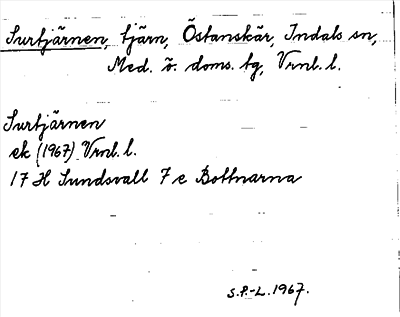 Surtjärnen, tjärn, Östanskär, Indals sn,
Med. ö. doms. tg, Vrnl. l.
Surtjärnen
ek (1967) Vrnl. l.
17 H Sundsvall 7 e Bottnarna
S.P.-L. 1967.